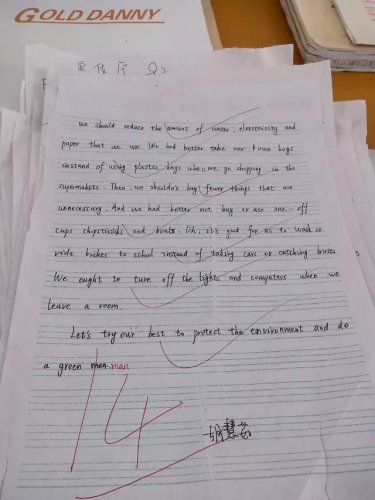 GOLD DANNY
we should reduce the amount of water, eleecericity and
paper that we use. We had better take our own bags
instand of using plastic bags when we go shopping in the
supermakets. Then we shouldn's buy fewer things that are
unnecessary. And we had better not buy or use one-off
cups chopsticks and bowls. Oh, it's good for us to walk or
ride bickes to school instead of taking cars or catching buses
We ought to ture off the lights and computers when we
leave a room
Let's try our best to protect the environment and do
a green man
14